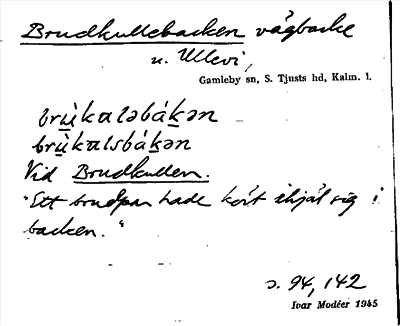 Brudkullebacken vägbacke
u. Ullevi,
Gamleby sn, S. Tjusts hd, Kalm. l.
brù̲kaləbák̲ən
brù̲kalsbák̲ən
Vid Brudkullen.
"Ett brudpar hade kört ihjäl sig i
backen."
s. 94, 142
Ivar Modéer 1945